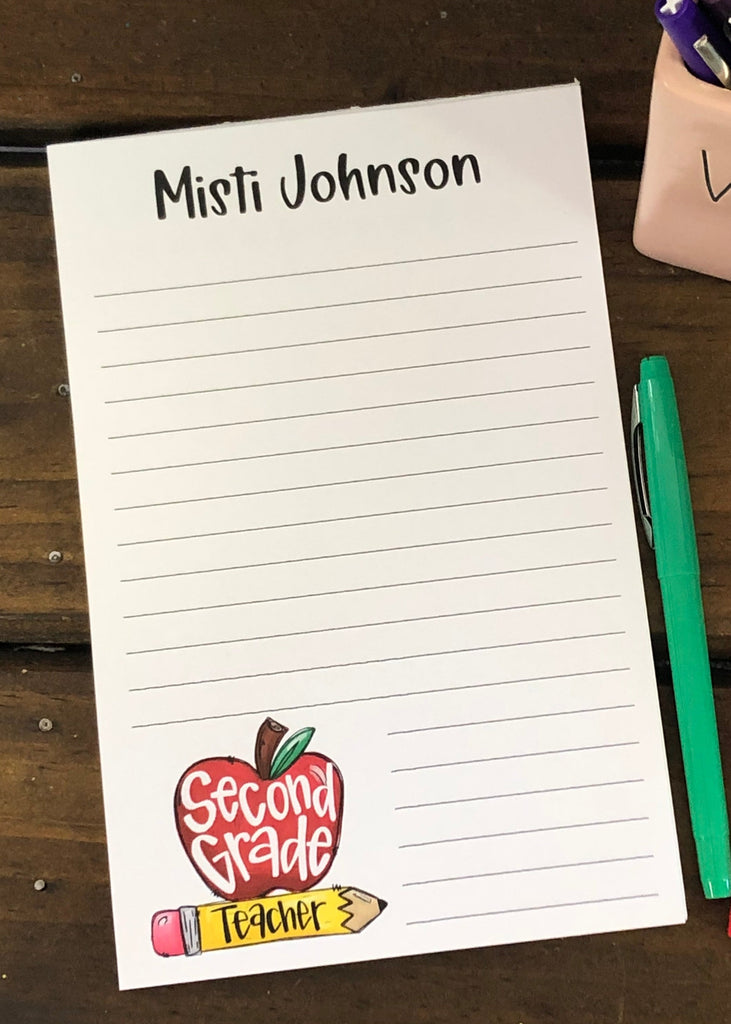 Misti Johnson
Second
Grade
Teacher